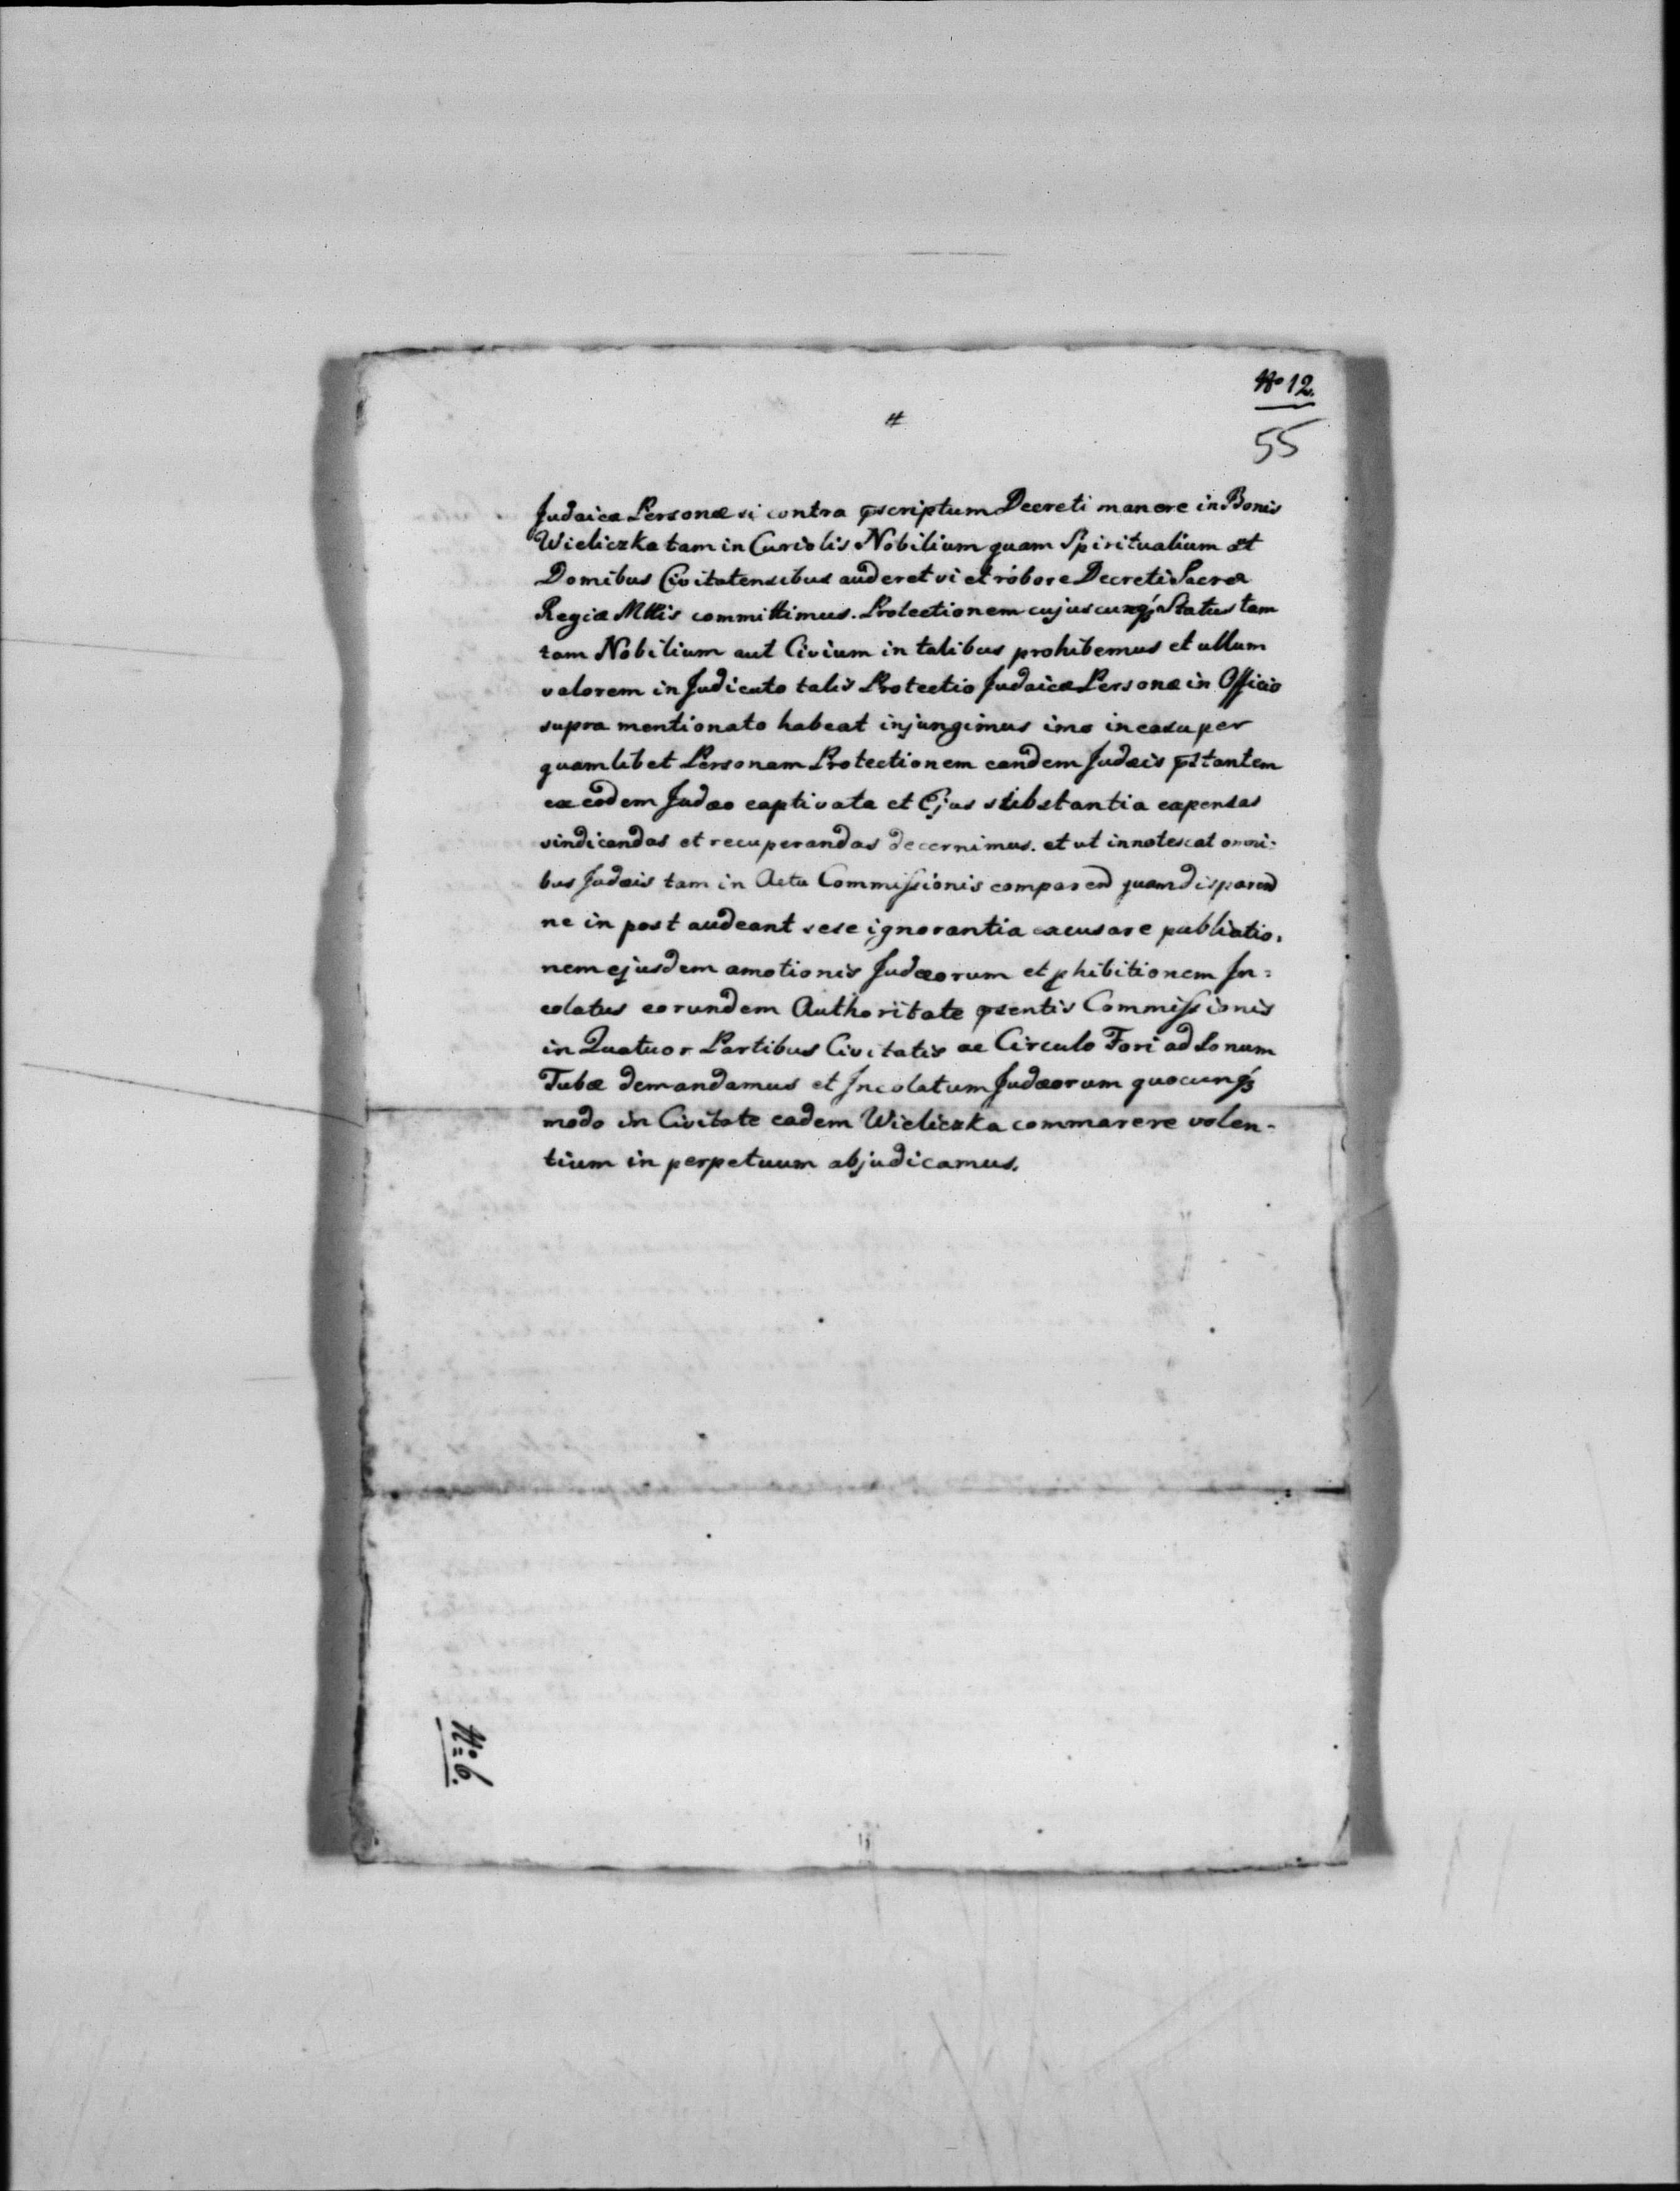 No 12.
#
55
Judaicæ Personæ si contra prscriptum Decreti manere in Bonis
Wieliczka tam in Curiolis Nobilium quam Spiritualium et
Domibus Civitatensibus auderet vi et robore Decreti Sacræ
Regiæ Mttis committimus. Protectionem cujuscunq₃ Status tam
tam Nobilium aut Civium in talibus prohibemus et ullum
valorem in Judicato talis Protectio Judaicæ Personæ in Officio
supra mentionato habeat injungimus imo in casu per
quamlibet Personam Protectionem eandem Judæis prstantem
ex eodem Judæo captivata et Ejus substantia expensas
vindicandas et recuperandas decernimus. et ut innotescat omni:
bus Judæis tam in Actu Commissionis comparend quam disparend
ne in post audeant sese ignorantia excusare publicatio,
nem ejusdem amotionis Judæorum et phibitionem In:
colatus eorundem Authoritate prsentis Commissionis
in Quatuor Partibus Civitatis ac Circulo Fori ad Sonum
Tubæ demandamus et Incolatum Judæorum quocunq₃
modo in Civitate eadem Wieliczka commarere volen-
tium in perpetuum abjudicamus.
No 6.